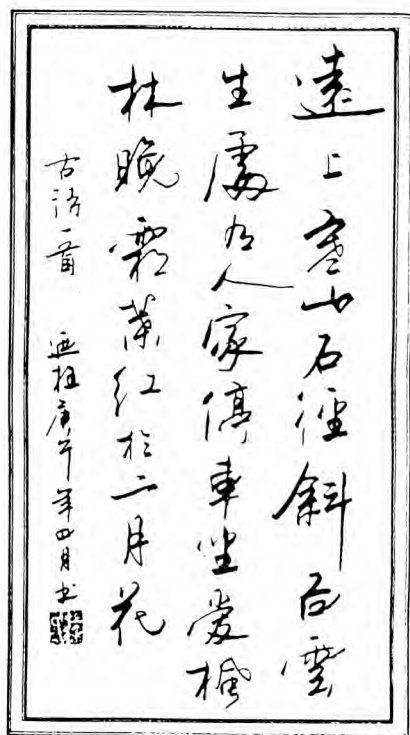 遠上寒山石徑斜白雲
生處有人家停車坐愛楓
林晚霜葉紅於二月花
古詩一首 庚午年四月书